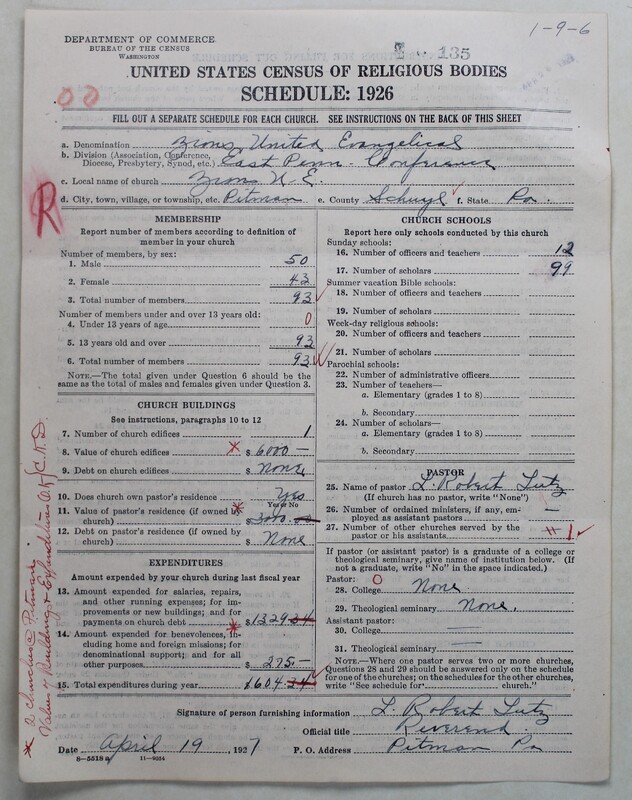 1-9-6
DEPARTMENT OF COMMERCE
BUREAU OF THE CENSUS
WASHINGTON
135
UNITED STATES CENSUS OF RELIGIOUS BODIES
SCHEDULE: 1926
00
FILL OUT A SEPARATE SCHEDULE FOR EACH CHURCH. SEE INSTRUCTIONS ON THE BACK OF THIS SHEET
a. Denomination Zions United Evangelical
b. Division (Association, Conference, Diocese, Presbytery, Synod, etc.) East Penn. Conference
c. Local name of church Zions U.E.
d. City, town, village, or township, etc. Pitman e. County Schuyl f. State Pa.
R
MEMBERSHIP
Report number of members according to definition of
member in your church
Number of members, by sex:
1. Male 50
2. Female 43
3. Total number of members 93
Number of members under and over 13 years old:
4. Under 13 years of age 0
5. 13 years old and over 93
6. Total number of members 93
NOTE.—The total given under Question 6 should be the
same as the total of males and females given under Question 3.
CHURCH BUILDINGS
See instructions, paragraphs 10 to 12
7. Number of church edifices 1
8. Value of church edifices * $ 6000 —
9. Debt on church edifices $ None
10. Does church own pastor's residence Yes
Yes or No
11. Value of pastor's residence (if owned by
church) * $ 3000.
12. Debt on pastor's residence (if owned by
church) $ None
EXPENDITURES
Amount expended by your church during last fiscal year
13. Amount expended for salaries, repairs,
and other running expenses; for im-
provements or new buildings; and for
payments on church debt * $ 1329 34
14. Amount expended for benevolences, in-
cluding home and foreign missions; for
denominational support; and for all
other purposes $ 275.—
15. Total expenditures during year 1604 34
CHURCH SCHOOLS
Report here only schools conducted by this church
Sunday schools:
16. Number of officers and teachers 12
17. Number of scholars 99
Summer vacation Bible schools:
18. Number of officers and teachers
19. Number of scholars
Week-day religious schools:
20. Number of officers and teachers
21. Number of scholars
Parochial schools:
22. Number of administrative officers
23. Number of teachers—
a. Elementary (grades 1 to 8)
b. Secondary
24. Number of scholars—
a. Elementary (grades 1 to 8)
b. Secondary
PASTOR
25. Name of pastor L. Robert Lutz
(If church has no pastor, write "None")
26. Number of ordained ministers, if any, em-
ployed as assistant pastors —
27. Number of other churches served by the
pastor or his assistants 1
If pastor (or assistant pastor) is a graduate of a college or
theological seminary, give name of institution below. (If
not a graduate, write "No" in the space indicated.)
Pastor: 0
28. College None
29. Theological seminary None.
Assistant pastor:
30. College —
31. Theological seminary —
NOTE.—Where one pastor serves two or more churches,
Questions 28 and 29 should be answered only on the schedule
for one of the churches; on the schedules for the other churches,
write "See schedule for church."
Signature of person furnishing information L. Robert Lutz
Official title Reverend
Date April 19, 1927 P. O. Address Pitman Pa
8-5518 a 11-9034
* 2 churches @ Pitman
Value of Buildings & Expenditures O.K. C.K.D.